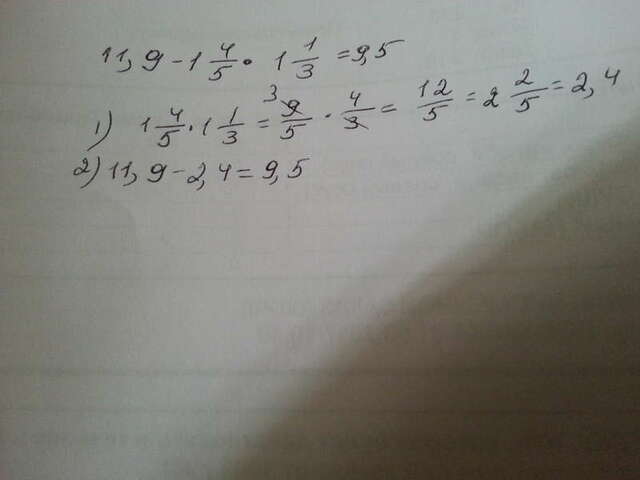 11,9 - 1 4/5 · 1 1/3 = 9,5
1) 1 4/5 · 1 1/3 = 3 9/5 · 4/3 = 12/5 = 2 2/5 = 2,4
2) 11,9 - 2,4 = 9,5